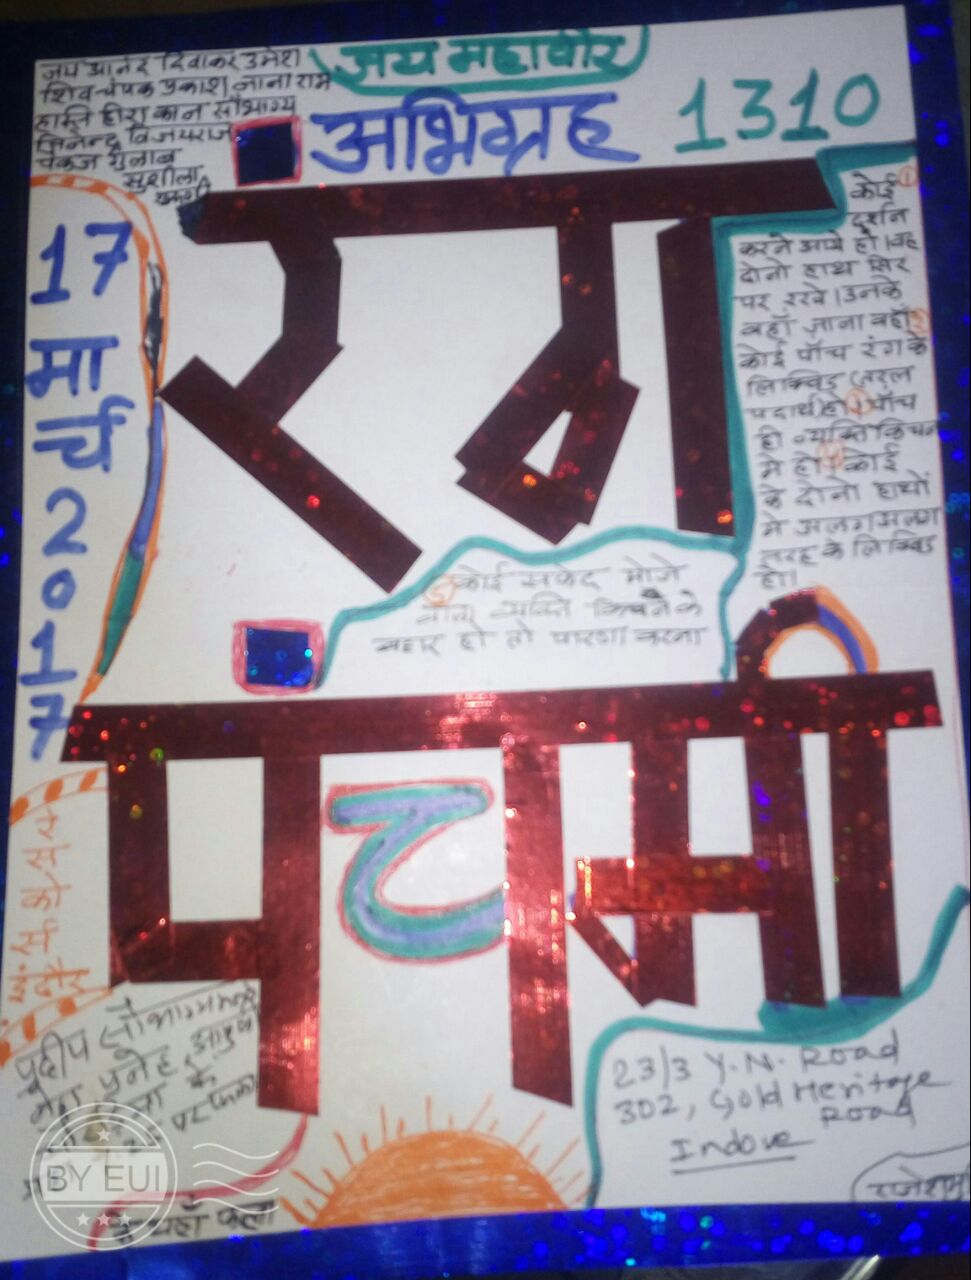 जय महावीर
जय आनंद दिवाकर उमेश
शिव चंपक प्रकाश नाना राम
हस्ति हीरा कान सौभाग्य
जिनेन्द्र विजयराज
पंकज गुलाब
सुशीला
अभिग्रह 1310
17
मार्च
2017
रंग
① कोई
दर्शन
करने आये हो । वह
दोनो हाथ सिर
पर रखे । उनके
वहाँ जाना वहाँ
कोई पाँच रंग के
लिक्विड (तरल
पदार्थ) हो पाँच
ही व्यक्ति किचन
में हो । कोई
के दोनो हाथों
में अलग अलग
तरह के लिक्विड
हो ।
⑤ कोई सफेद मोजे
वाला व्यक्ति किचन के
बहार हो तो पारणा करना
पंचमी
प्रदीप सौभाग्यमल
के यहाँ फला
23/3 Y.N. Road
302, Gold Heritage
Road
Indore
BY EUI